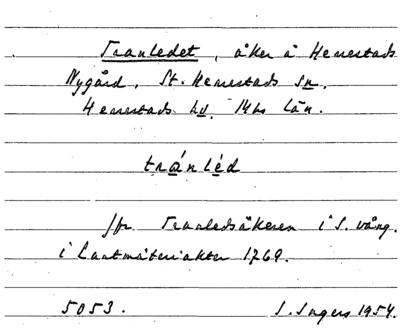 Tranledet, åker å Herrestads
Nygård, St. Herrestads sn.
Herrestads hd. Mhs län.
tránléd
Jfr Tranledsåkeren i S. vång.
i Lantmäteriakter 1769.
5053. S. Ingers 1954.